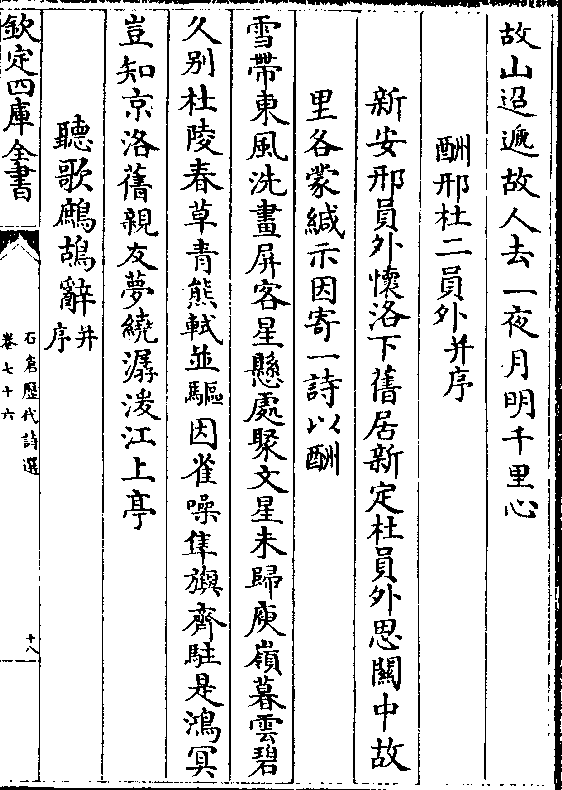 故山迢遞故人去一夜月明千里心
酬邢杜二員外并序
新安邢員外懷洛下舊居新定杜員外思關中故
里各蒙緘示因寄一詩以酬
雪帶東風洗畫屏客星懸處聚文星未歸庾嶺暮雲碧
久别杜陵春草青熊軾並驅因雀噪隼旟齊駐是鴻冥
豈知京洛舊親友夢繞潺湲江上亭
聽歌鷓鴣辭并序
欽定四庫全書
石倉歷代詩選
卷七十六
十八